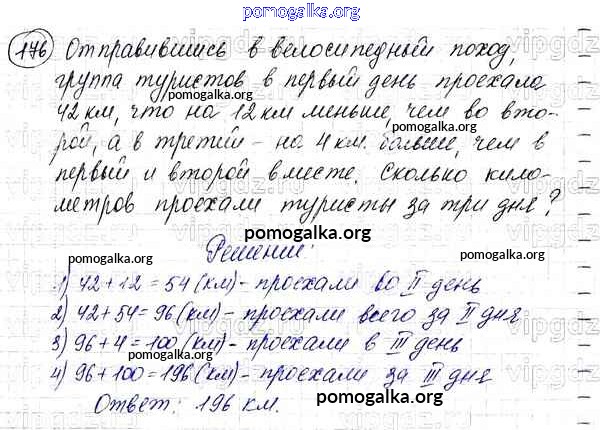 pomogalka.org
176 Отправившись в велосипедный поход,
группа туристов в первый день проехала
pomogalka.org
42 км, что на 12 км меньше, чем во вто-
pomogalka.org
рой, а в третий - на 4 км. больше, чем в
первый и второй вместе. Сколько кило-
pomogalka.org
метров проехали туристы за три дня?
pomogalka.org
Решение:
pomogalka.org
1) 42+12=54(км)-проехали во II день
2) 42+54=96(км)-проехали всего за II дня
pomogalka.org
3) 96+4=100(км)-проехали в III день
pomogalka.org
4) 96+100=196(км)-проехали за III дня
Ответ: 196 км.
pomogalka.org